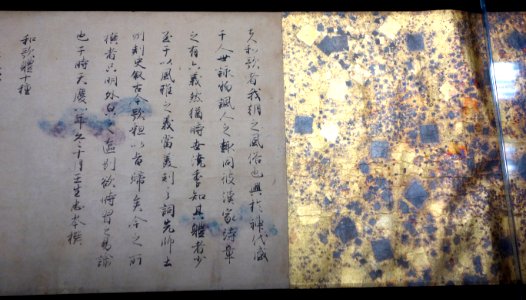 夫和歌者我朝之風俗也興於神代盛
于人世詠物諷人之趣同彼漢家詩章
之有六義然猶時世澆季知其體者少
至于以風雅之義當美刺之詞先師土
州刺史叙古今歌粗以旨歸矣今之所
撰者只明外皃之區別欲時習之易諭
也于時天慶八年冬十月壬生忠岑撰
和歌體十種